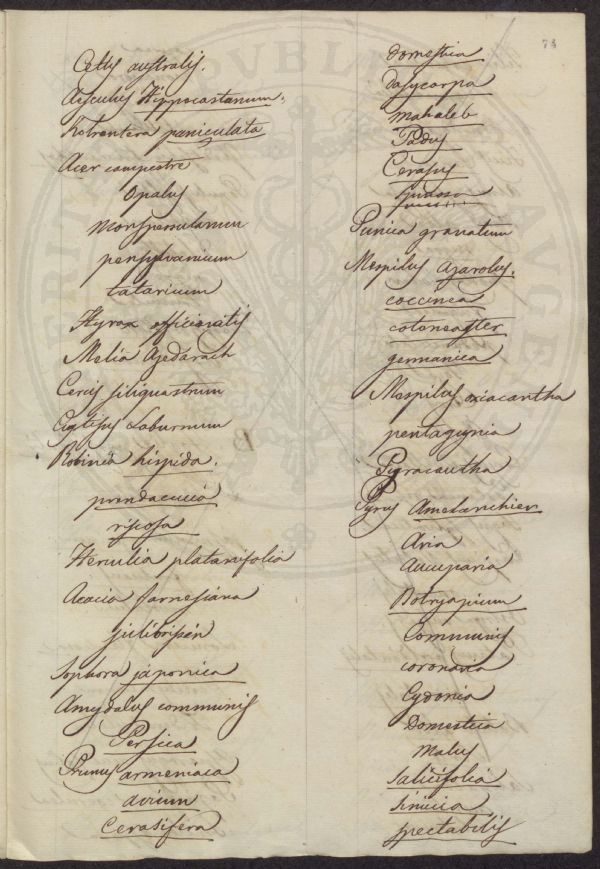 Celtis australis.
Aesculus Hippocastanum.
Kolreutera paniculata
Acer campestre
Opalus
monspessulanum
pensylvanicum
tataricum
Styrax officinalis
Melia Azedarach
Cercis siliquastrum
Cytisus Laburnum
Robinea hispida.
pseudacacia
viscosa
Sterculia platanifolia
Acacia farnesiana
julibrisen
Sophora japonica
Amygdalus communis
Persica
Prunus armeniaca
avium
Cerasifera
73
domestica
dasycarpa
mahaleb
Padus
Cerasus
Punica granatum
Mespilus azarolus.
coccinea
cotoneaster
germanica
Mespilus oxiacantha
pentagynia
Pyracantha
Pyrus Amelanchier
Aria
Aucuparia
Botryapium
Communis
coronaria
Cydonia
Domestica
Malus
Salicifolia
Sinica
spectabilis